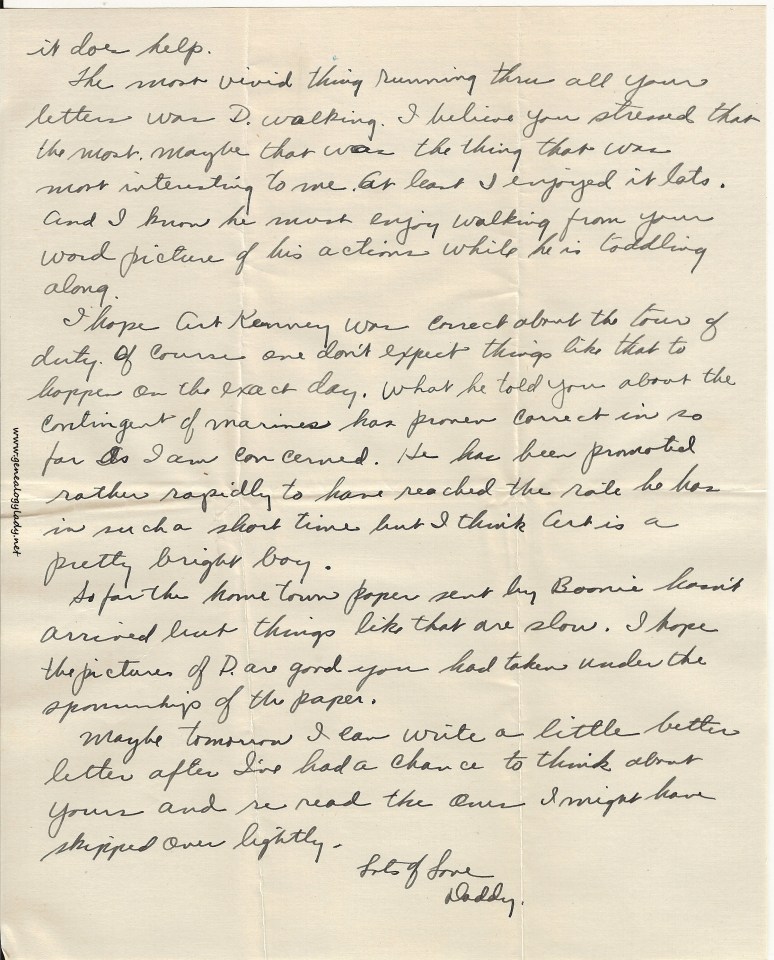 it does help.
The most vivid thing running thru all your
letters was D. walking. I believe you stressed that
the most. Maybe that was the thing that was
most interesting to me. At least I enjoyed it lots.
And I know he must enjoy walking from your
word picture of his actions while he is toddling
along.
I hope Art Kenney was correct about the tour of
duty. Of course one don't expect things like that to
happen on the exact day. What he told you about the
contingent of marines has proven correct in so
far as I am concerned. He has been promoted
rather rapidly to have reached the rate he has
in such a short time but I think Art is a
pretty bright boy.
So far the home town paper sent by Boonie hasn't
arrived but things like that are slow. I hope
the pictures of D. are good you had taken under the
sponsorship of the paper.
Maybe tomorrow I can write a little better
letter after I've had a chance to think about
yours and re read the ones I might have
skipped over lightly.
Lots of Love
Daddy.
www.genealogylady.net